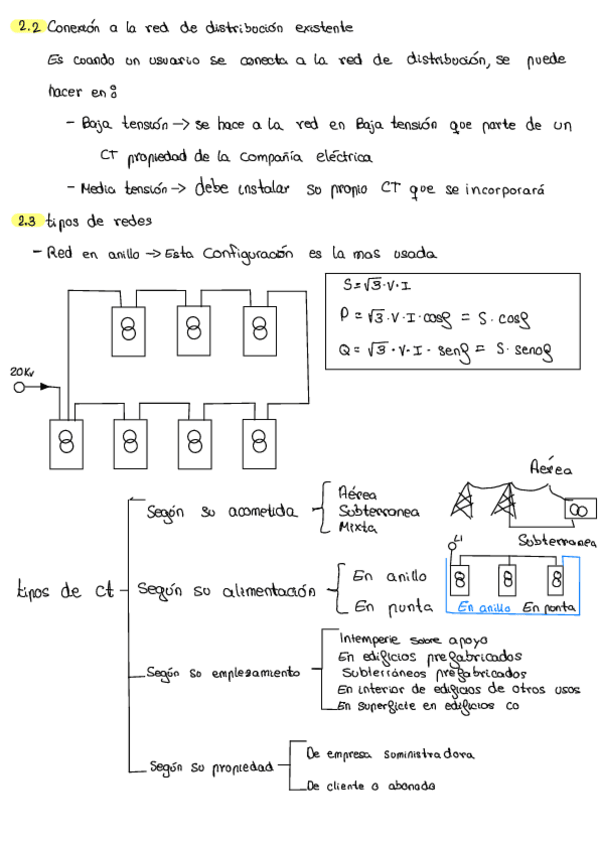 2.2 Conexión a la red de distribución existente
Es cuando un usuario se conecta a la red de distribución, se puede
hacer en:
- Baja tensión → se hace a la red en Baja tensión que parte de un
CT propiedad de la compañía eléctrica
- Media tensión → debe instalar su propio CT que se incorporará
2.3 tipos de redes
- Red en anillo → Esta Configuración es la mas usada
S = √3·V·I
P = √3·V·I·cosφ = S·cosφ
Q = √3·V·I·senφ = S·senoφ
20Kv
Aérea
Subterranea
tipos de ct
Según su acometida
Aérea
Subterranea
Mixta
Según su alimentación
En anillo
En punta
L1
En anillo En punta
Según su emplezamiento
Intemperie sobre apoyo
En edificios prefabricados
Subterráneos prefabricados
En interior de edificios de otros usos
En superficie en edificios co
Según su propiedad
De empresa suministradora
De cliente o abonado